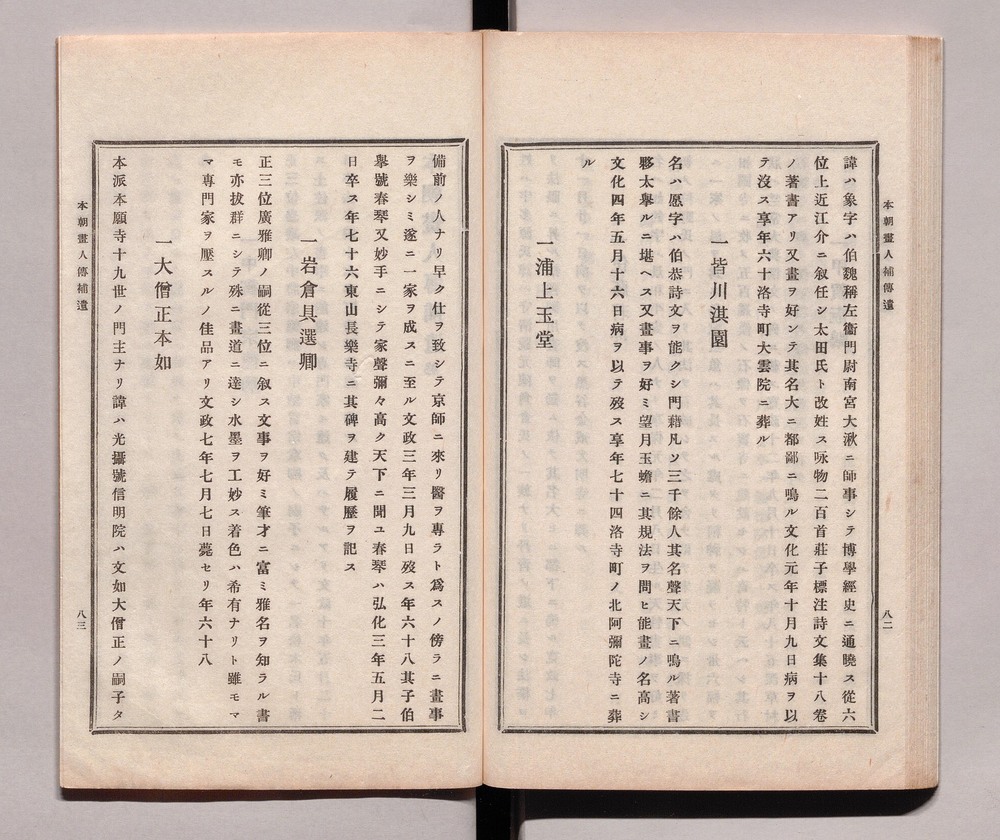 本朝畫人傳補遺
八二
諱ハ象字ハ伯魏稱左衞門尉南宮大湫ニ師事シテ博學經史ニ通曉ス從六
位上近江介ニ叙任シ太田氏ト改姓ス咏物二百首莊子標注詩文集十八卷
ノ著書アリ又畫ヲ好ンテ其名大ニ都鄙ニ鳴ル文化元年十月九日病ヲ以
テ沒ス享年六十洛寺町大雲院ニ葬ル
一皆川淇園
名ハ愿字ハ伯恭詩文ヲ能クシ門藉凡ソ三千餘人其名聲天下ニ鳴ル著書
夥太擧ルニ堪ヘス又畫事ヲ好ミ望月玉蟾ニ其規法ヲ問ヒ能畫ノ名高シ
文化四年五月十六日病ヲ以テ歿ス享年七十四洛寺町ノ北阿彌陀寺ニ葬
ル
一浦上玉堂
備前ノ人ナリ早ク仕ヲ致シテ京師ニ來リ醫ヲ專ラト爲スノ傍ラニ畫事
ヲ樂シミ遂ニ一家ヲ成スニ至ル文政三年三月九日歿ス年六十八其子伯
擧號春琴又妙手ニシテ家聲彌々高ク天下ニ聞ユ春琴ハ弘化三年五月二
日卒ス年七十六東山長樂寺ニ其碑ヲ建テ履歷ヲ記ス
一岩倉具選卿
正三位廣雅卿ノ嗣從三位ニ叙ス文事ヲ好ミ筆才ニ富ミ雅名ヲ知ラル書
モ亦拔群ニシテ殊ニ畫道ニ達シ水墨ヲ工妙ス着色ハ希有ナリト雖モマ
マ專門家ヲ壓スルノ佳品アリ文政七年七月七日薨セリ年六十八
一大僧正本如
本派本願寺十九世ノ門主ナリ諱ハ光攝號信明院ハ文如大僧正ノ嗣子タ
本朝畫人傳補遺
八三